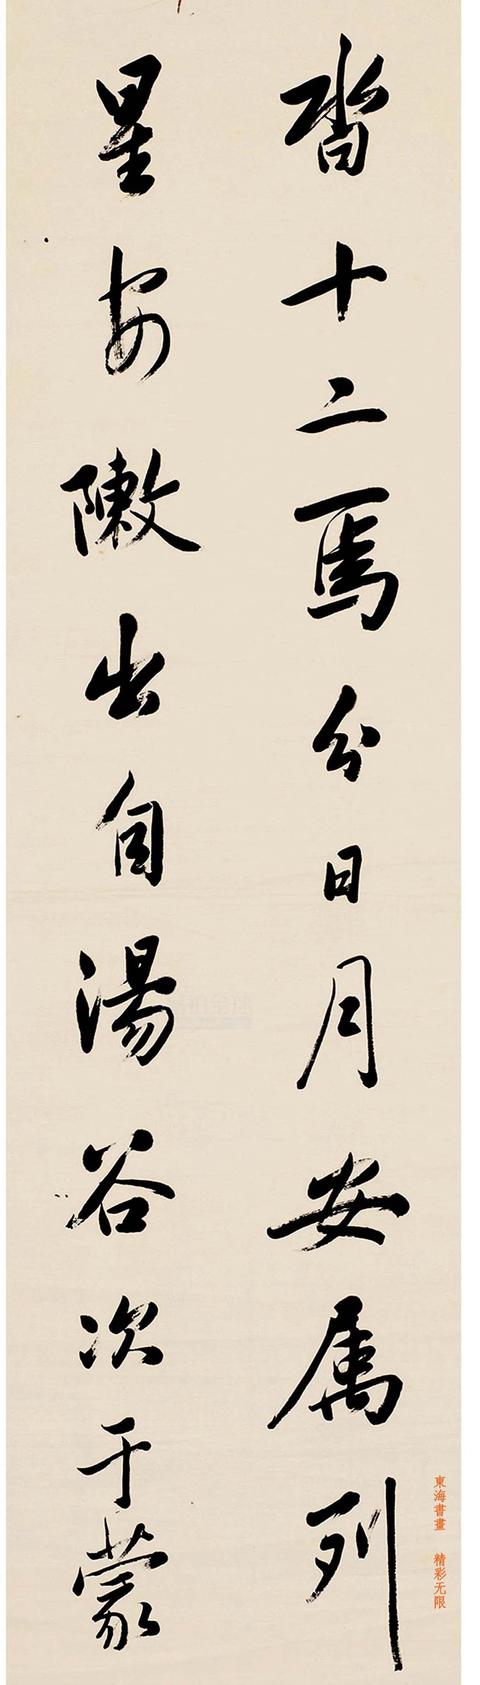 沓十二焉分日月安属列
星安敶出自湯谷次于蒙
東海書畫 精彩无限